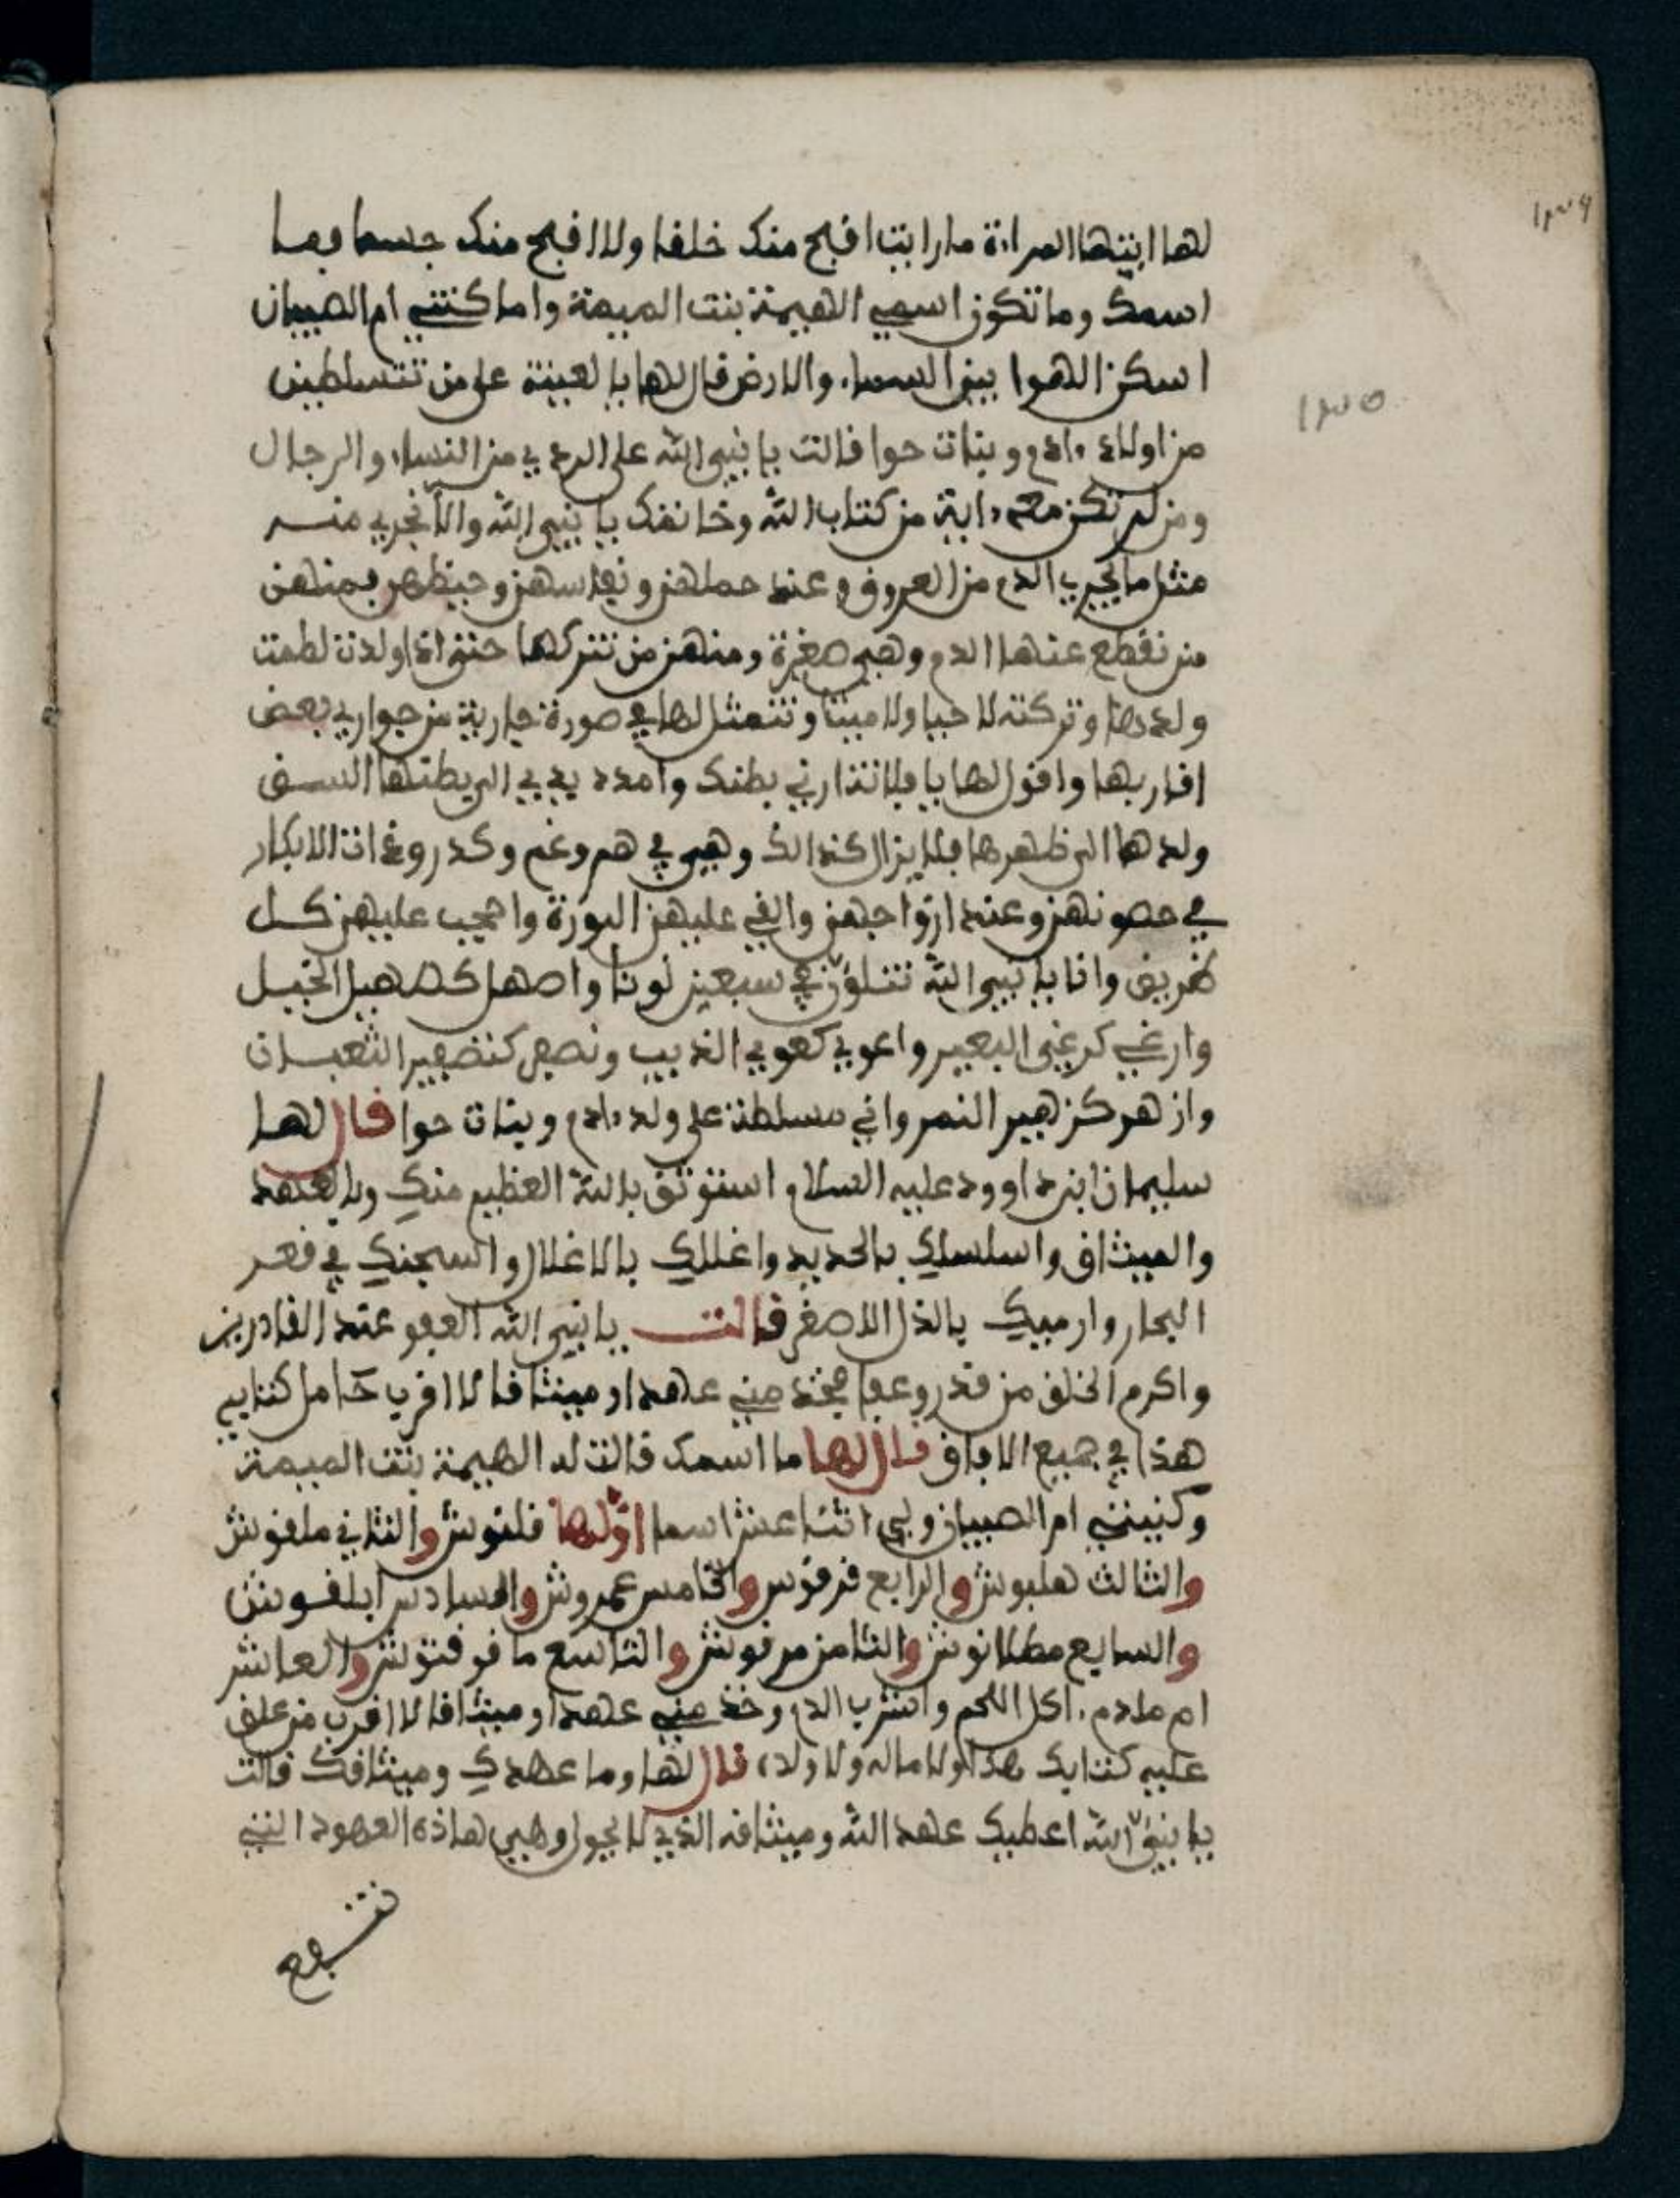 لها ايتها المراة ما رايت اقبح منك خلقا ولا اقبح منك جسما فما
اسمك وما تكون اسمي الهيمة بنت الميمة واما كنتي ام الصبيان
اسكن الهوا بين السماء والارض قال لها يا لعينة على من تتسلطين
من اولاد ءادم وبنات حوا قالت يا نبي الله على الردي من النساء والرجال
ومن لم تكن معه ءاية من كتاب الله وخانفك يا نبي الله والا نجري منه
مثل ما يجري الدم من العروق وعند حملهن ونفاسهن وحيظهن فمنهن
من نقطع عنها الدم وهي صغرة ومنهن من نتركها حتى اذا ولدت لطمت
ولدها وتركته لا حيا ولا ميتا ونتمثل لها في صورة جارية من جواري بعض
اقاربها واقول لها يا فلانة ارني بطنك وامدد يدي الى بطنها السق
ولدها الى ظهرها فلا يزال كذالك وهي في هم وغم وكدر وغ ات الابكار
في حصونهن وعند ازواجهن والقي عليهن البورة واهجب عليهن كل
ظريق وانا يا نبي الله نتلون في سبعين لونا واصهل كصهيل الخيل
وارغي كرغي البعير واعوي كعوي الذيب ونصفر كتصفير الثعبان
وازهر كزهير النمر واني مسلطة على ولد ءادم وبنات حوا قال لها
سليمان ابن داوود عليه السلام استوثق بالله العظيم منك وبالعهد
والميثاق واسلسلك بالحديد واغللك بالاغلال واسجنك في قعر
البحار وارميك بالذل الاصغر قالت يا نبي الله العفو عند القادرين
واكرم الخلق من قدر وعفا فخذ مني عهدا وميثاقا لا اقرب حامل كتابي
هذا في جميع الافاق قال لها ما اسمك قالت له الهيمة بنت الميمة
وكنيتي ام الصبيان ولي اثنا عشر اسما اولها قلنوش والثاني ملقوش
والثالث هلبوش والرابع قرقوس والخامس عمروش والسادس ابلقوش
والسابع مطلانوش والثامن مرقوش والتاسع ما فرقتوش والعاشر
ام ملدم ءاكل اللحم واشرب الدم وخذ مني عهدا وميثاقا لا اقرب من علق
عليه كتابك هذا ولا ماله ولا ولده قال لها وما عهدك وميثاقك قالت
يا نبي الله اعطيك عهد الله وميثاقه الذي لا يحول وهي هاذه العهود التي